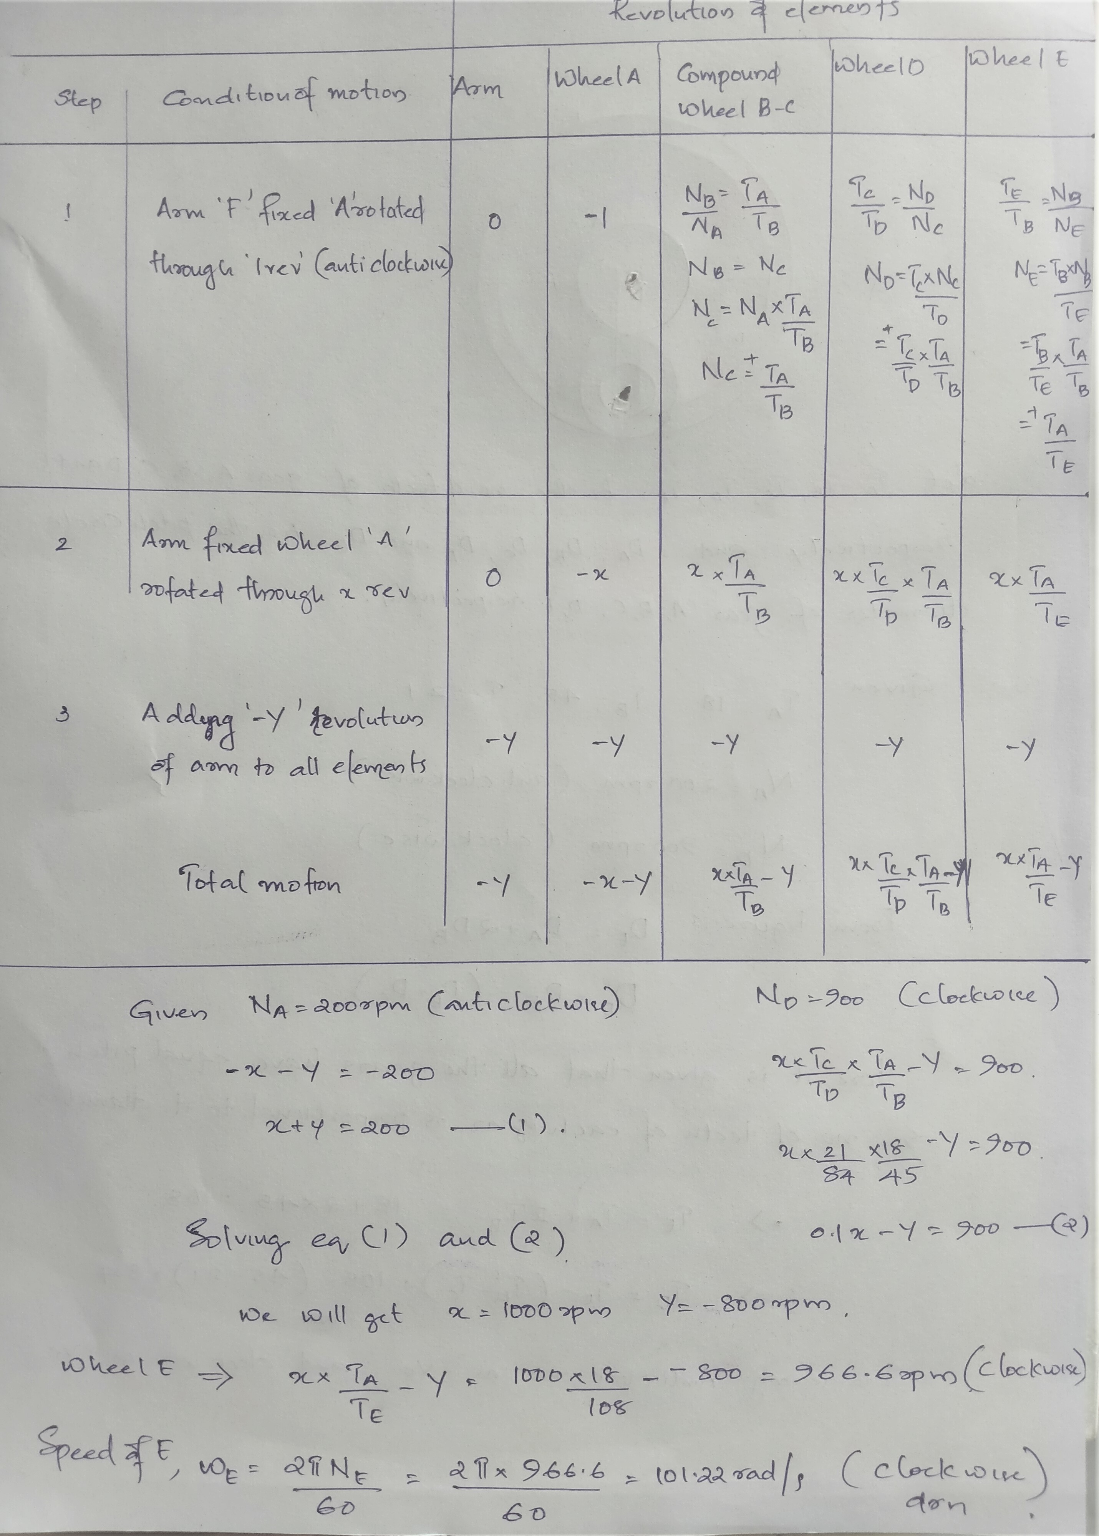 Revolution of elements
Step Condition of motion Arm Wheel A Compound wheel B-C Wheel D Wheel E
1 Arm 'F' fixed 'A' rotated through '1 rev' (anti clockwise) 0 -1
N_B/N_A = T_A/T_B
N_B = N_C
N_C = N_A × T_A/T_B
N_C = + T_A/T_B
T_C/T_D = N_D/N_C
N_D = T_C × N_C/T_D
= + T_C/T_D × T_A/T_B
T_E/T_B = N_B/N_E
N_E = T_B × N_B/T_E
= T_B/T_E × T_A/T_B
= + T_A/T_E
2 Arm fixed wheel 'A' rotated through x rev 0 -x x × T_A/T_B x × T_C/T_D × T_A/T_B x × T_A/T_E
3 Adding '-Y' revolutions of arm to all elements -Y -Y -Y -Y -Y
Total motion -Y -x-Y x × T_A/T_B - Y x × T_C/T_D × T_A/T_B - Y x × T_A/T_E - Y
Given N_A = 200rpm (anticlockwise)
-x - Y = -200
x + y = 200 —(1).
N_D = 900 (clockwise)
x × T_C/T_D × T_A/T_B - Y = 900.
x × 21/84 × 18/45 - Y = 900.
0.1x - Y = 900 —(2)
Solving eq (1) and (2)
We will get x = 1000 rpm Y = -800 rpm.
Wheel E ⇒ x × T_A/T_E - Y = 1000 × 18/108 - - 800 = 966.6 rpm (clockwise)
Speed of E, ω_E = 2πN_E/60 = 2π × 966.6/60 = 101.22 rad/s (clockwise) dirn.